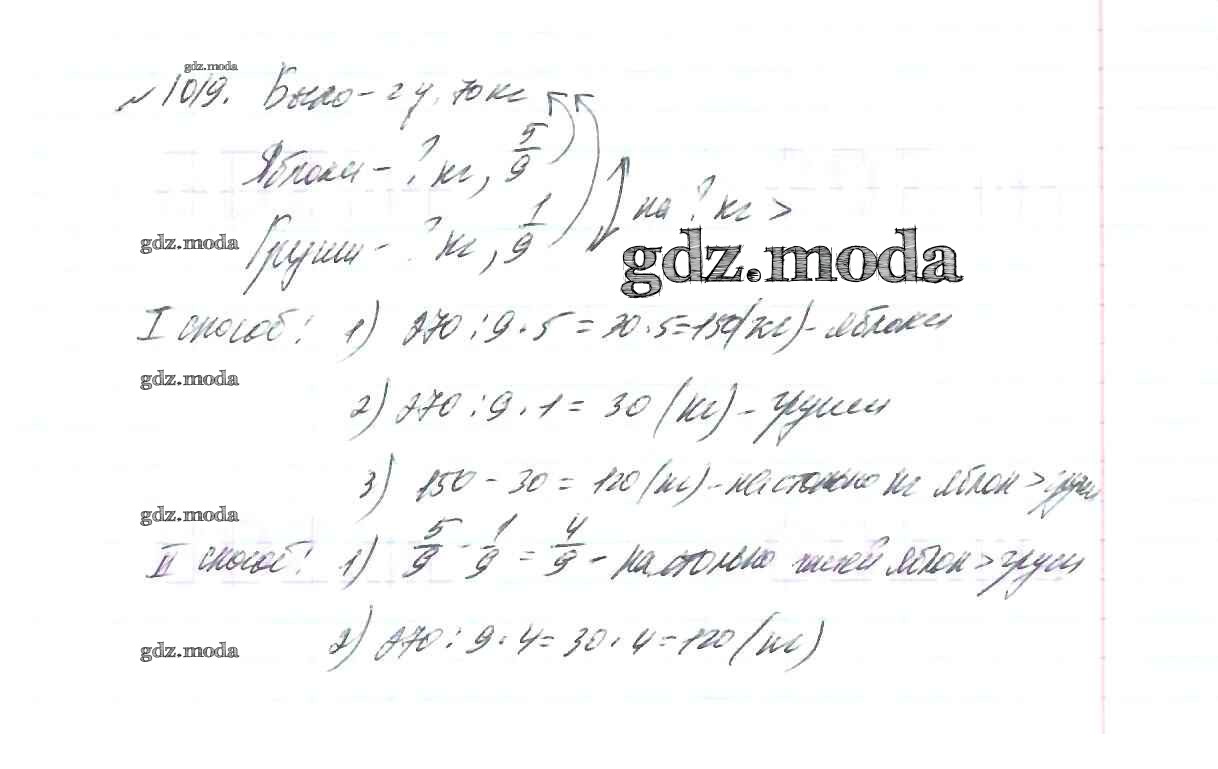 gdz.moda
№ 1019. Было – 2 ц 70 кг
Яблоки – ? кг, 5/9
на ? кг >
Груши – ? кг, 1/9
gdz.moda
gdz.moda
I способ: 1) 270 : 9 · 5 = 30 · 5 = 150 (кг) – яблоки
gdz.moda
2) 270 : 9 · 1 = 30 (кг) – груши
3) 150 – 30 = 120 (кг) – настолько кг яблок > груш
gdz.moda
II способ: 1) 5/9 - 1/9 = 4/9 – настолько частей яблок > груш
2) 270 : 9 · 4 = 30 · 4 = 120 (кг)
gdz.moda